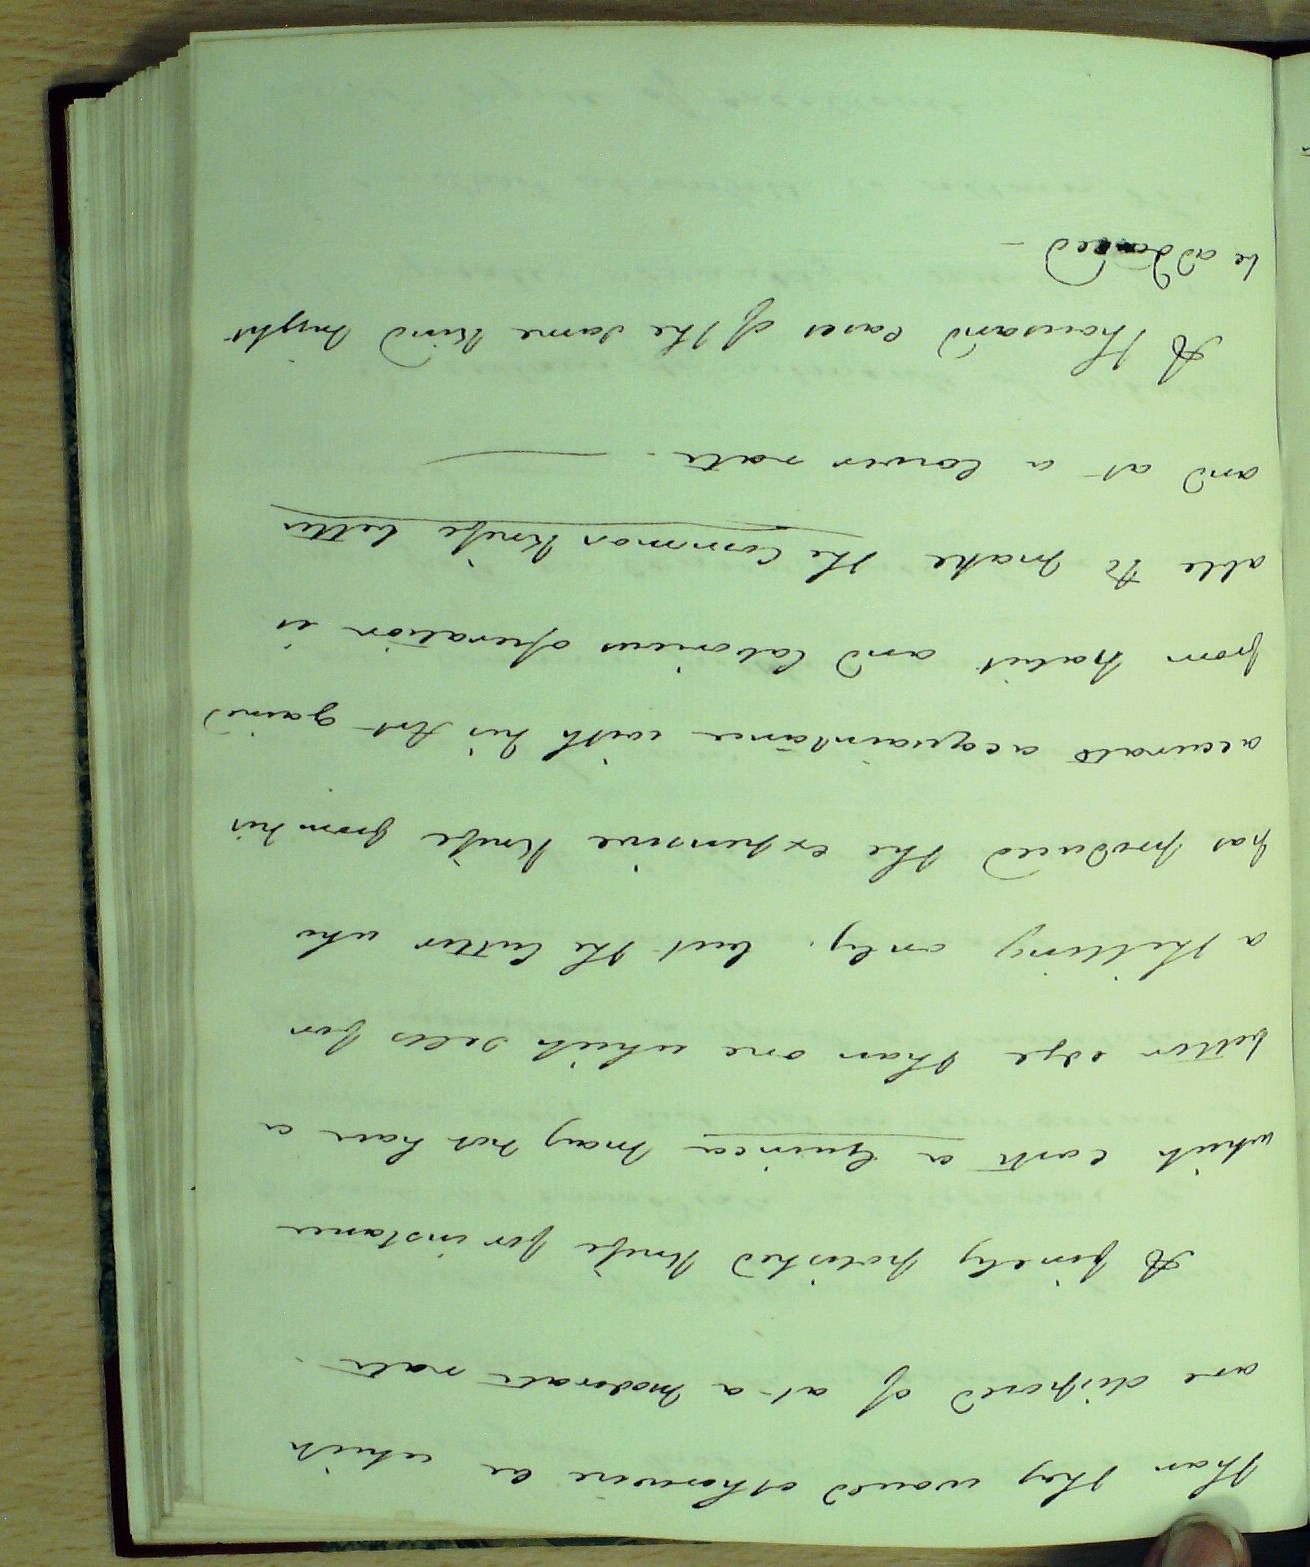 than they would otherwise be which
are disposed of at a moderate rate.
A finely polished Knife for instance
which costs a Guinea may not have a
better edge than one which sells for
a shilling only. but the Cutler who
has produced the expensive Knife from his
accurate acquaintance with his Art gained
from habit and laborious operation is
able to make the Common Knife better
and at a lower rate. —
A thousand cases of the same kind might
be adduced —